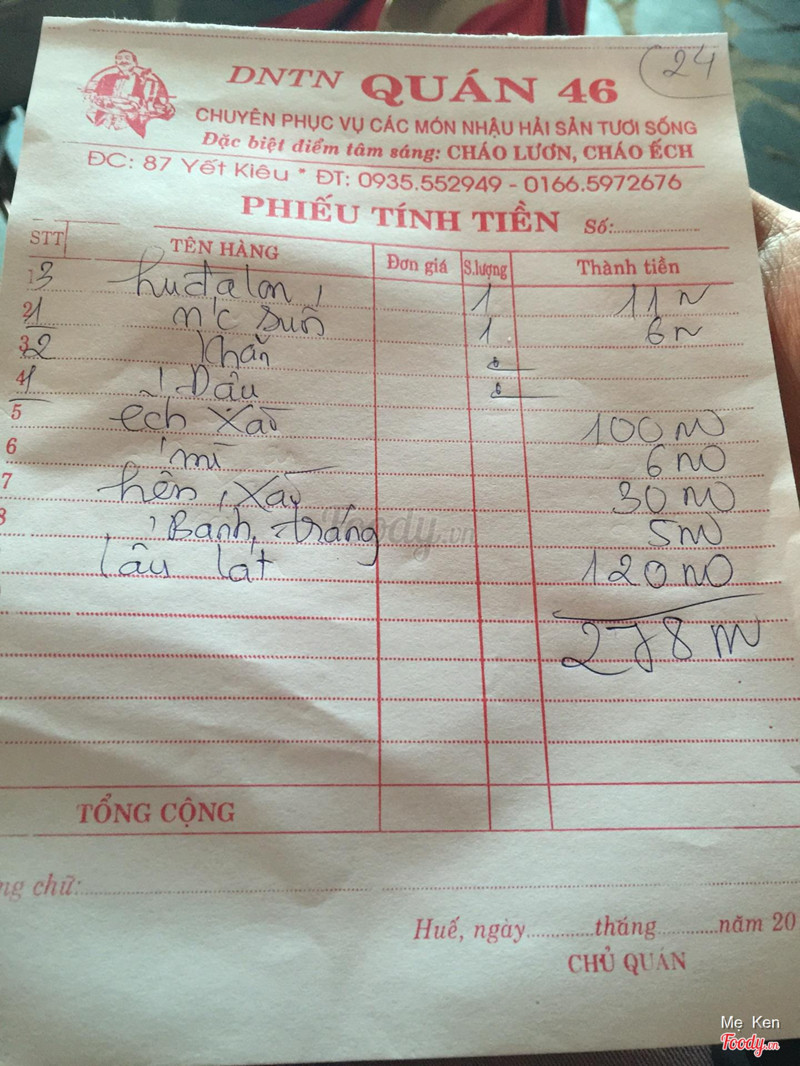 24
DNTN QUÁN 46
CHUYÊN PHỤC VỤ CÁC MÓN NHẬU HẢI SẢN TƯƠI SỐNG
Đặc biệt điểm tâm sáng: CHÁO LƯƠN, CHÁO ẾCH
ĐC: 87 Yết Kiêu * ĐT: 0935.552949 - 0166.5972676
PHIẾU TÍNH TIỀN Số:
STT TÊN HÀNG Đơn giá S.lượng Thành tiền
1 3 huđalon 1 11
2 1 n/c suối 1 6
3 2 Khăn
4 1 Dậu
5 ếch xào 100
6 mì 6
7 hến xào 30
8 Bánh tráng 5
lẩu lát 120
278
TỔNG CỘNG
ng chữ:
Huế, ngày tháng năm 20
CHỦ QUÁN
Foody.vn
Mẹ Ken
Foody.vn